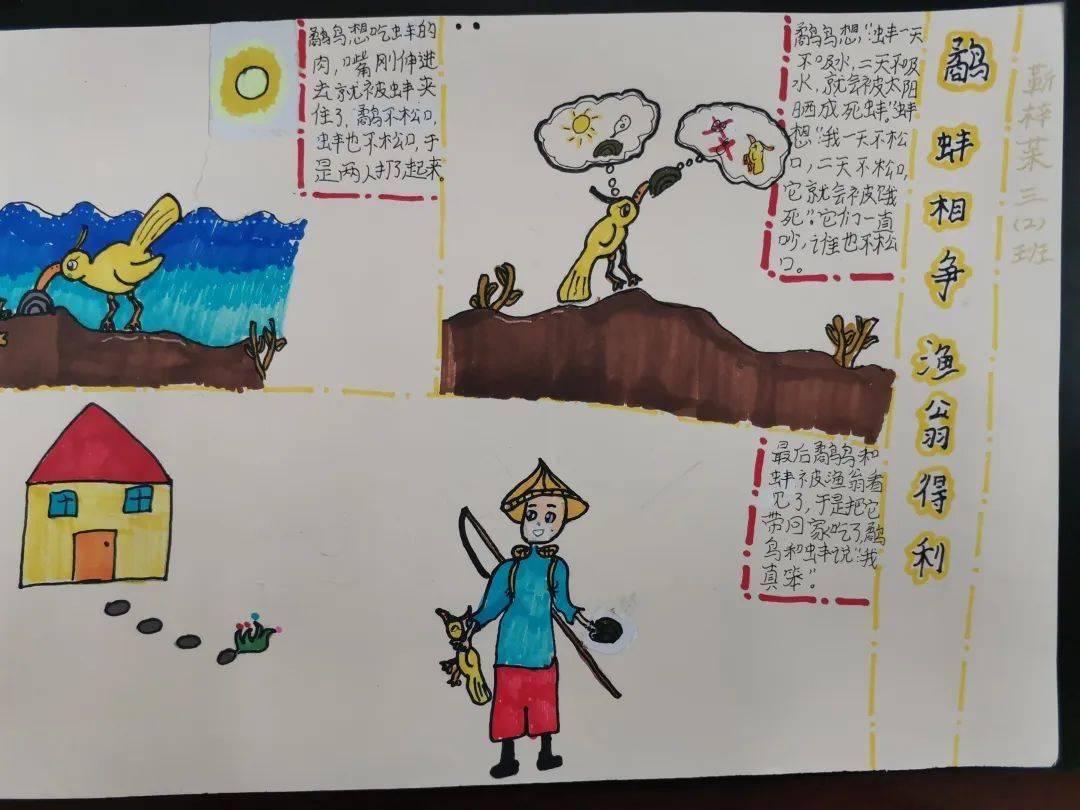 鹬蚌相争渔翁得利
靳梓 三(2)班
鹬鸟想吃蚌的
肉,嘴刚伸进
去就被蚌夹
住了,鹬不松口,
蚌也不松口,于
是两人打了起来.
鹬鸟想“蚌一天
不吸水,二天不吸
水,就会被太阳
晒成死蚌。”蚌
想“我一天不松
口,二天不松口,
它就会被饿
死”。它们一直
吵,谁也不松
口。
最后鹬鸟和
蚌被渔翁看
见了,于是把它
带回家吃了,鹬
鸟和蚌说“我
真笨”。